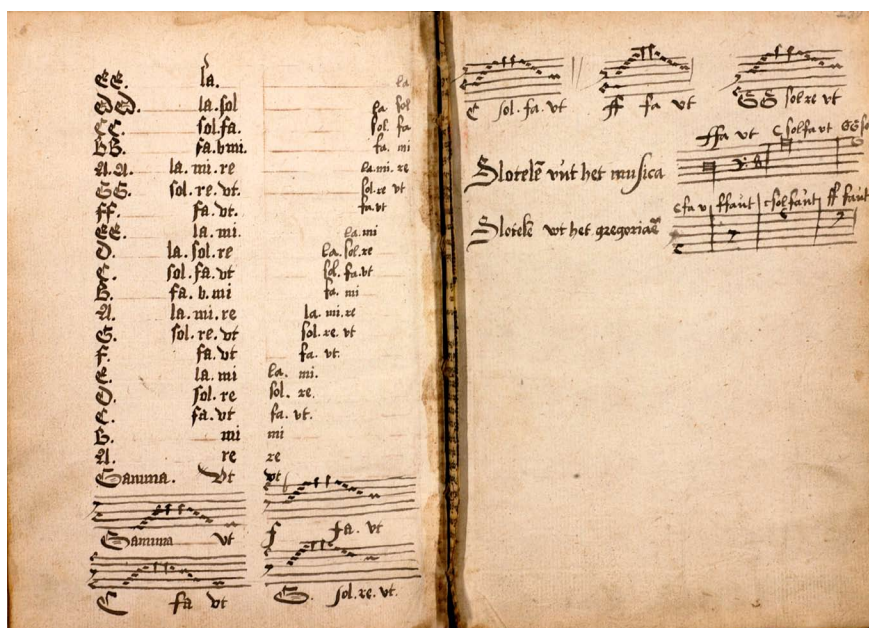 EE. la. la
DD. la.sol la sol
CC. sol.fa. sol. fa
BB. fa.b.mi. fa. mi
A.A. la.mi.re la.mi.re
GG. sol.re.vt. sol.re vt
ff. fa.vt. fa.vt
EE. la.mi. la.mi
D. la.sol.re la.sol.re
C. sol.fa.vt sol.fa.vt
B. fa.b.mi fa. mi
A. la.mi.re la.mi.re
G. sol.re.vt sol.re.vt
F. fa.vt fa.vt.
E. la.mi la. mi.
D. sol.re sol. re.
C. fa.vt fa. vt.
B. mi mi
A. re re
Gamma. Vt vt
Gamma vt
f fa. vt
C fa vt
G. sol.re.vt.
C sol.fa.vt
ff fa vt
GG sol re vt
ffa vt C solfa vt GG so
Slotelē vūt het musica
Cfa v ffaut csolfaut ff faut
Slotelē wt het gregoriaē